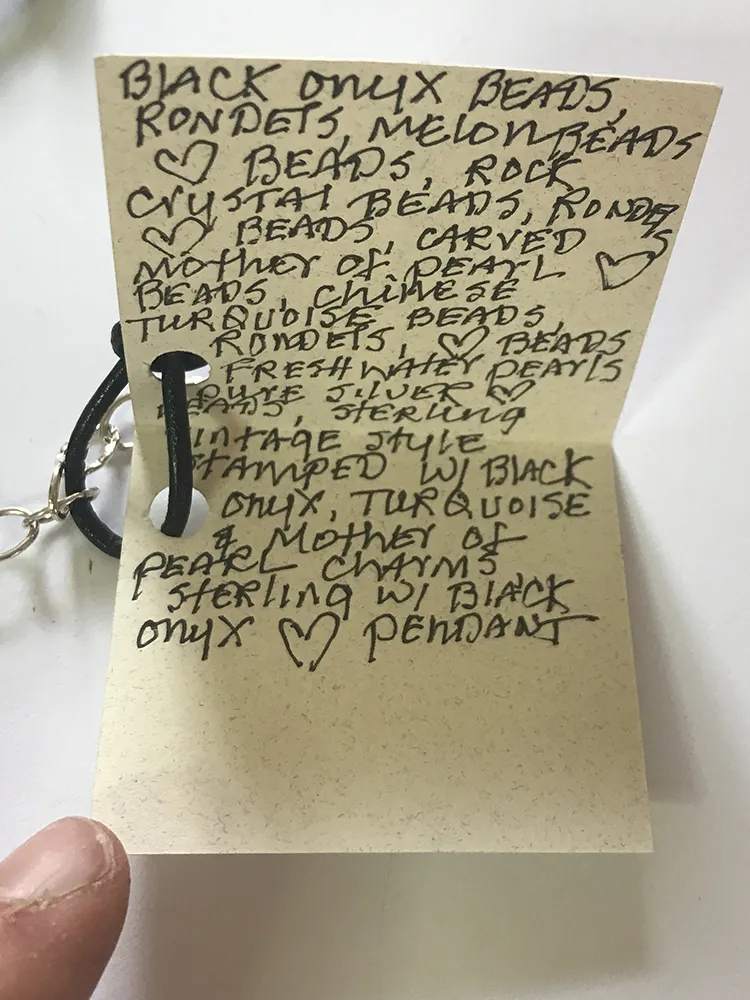 BLACK ONYX BEADS,
RONDETS, MELON BEADS
♡ BEADS, ROCK
CRYSTAL BEADS, RONDETS
♡ BEADS, CARVED
MOTHER OF PEARL ♡
BEADS, CHINESE
TURQUOISE BEADS,
RONDETS, ♡ BEADS
FRESHWATER PEARLS
PURE SILVER ♡
BEADS, STERLING
VINTAGE STYLE
STAMPED W/ BLACK
ONYX, TURQUOISE
& MOTHER OF
PEARL CHARMS
STERLING W/ BLACK
ONYX ♡ PENDANT